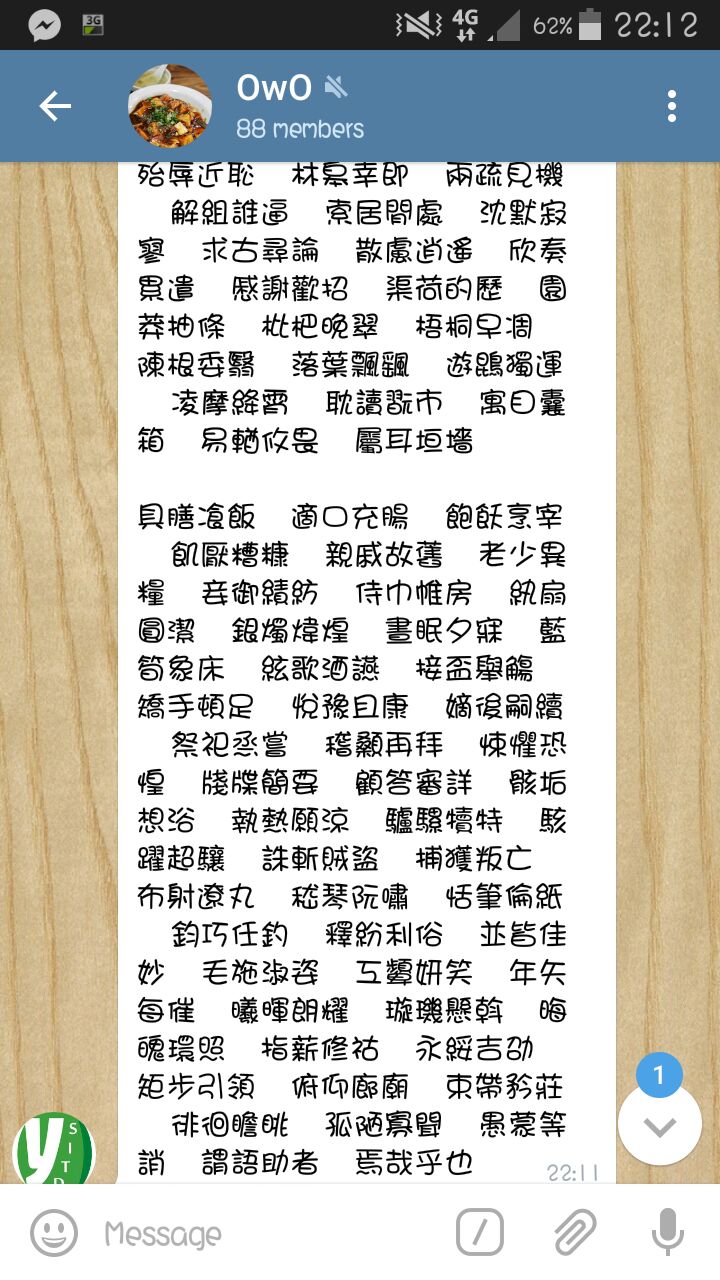 4G 62% 22:12
3G
OwO
88 members
殆辱近恥 林皋幸即 兩疏見機
解組誰逼 索居閒處 沈默寂
寥 求古尋論 散慮逍遙 欣奏
累遣 慼謝歡招 渠荷的歷 園
莽抽條 枇杷晚翠 梧桐早凋
陳根委翳 落葉飄颻 遊鵾獨運
凌摩絳霄 耽讀翫市 寓目囊
箱 易輶攸畏 屬耳垣墻
具膳飡飯 適口充腸 飽飫烹宰
飢厭糟糠 親戚故舊 老少異
糧 妾御績紡 侍巾帷房 紈扇
圓潔 銀燭煒煌 晝眠夕寐 藍
筍象床 絃歌酒讌 接盃舉觴
矯手頓足 悅豫且康 嫡後嗣續
祭祀烝嘗 稽顙再拜 悚懼恐
惶 牋牒簡要 顧答審詳 骸垢
想浴 執熱願涼 驢騾犢特 駭
躍超驤 誅斬賊盜 捕獲叛亡
布射遼丸 嵇琴阮嘯 恬筆倫紙
鈞巧任釣 釋紛利俗 並皆佳
妙 毛施淑姿 工顰妍笑 年矢
每催 曦暉朗耀 璇璣懸斡 晦
魄環照 指薪修祜 永綏吉劭
矩步引領 俯仰廊廟 束帶矜莊
徘徊瞻眺 孤陋寡聞 愚蒙等
誚 謂語助者 焉哉乎也
22:11
1
y SITD
Message